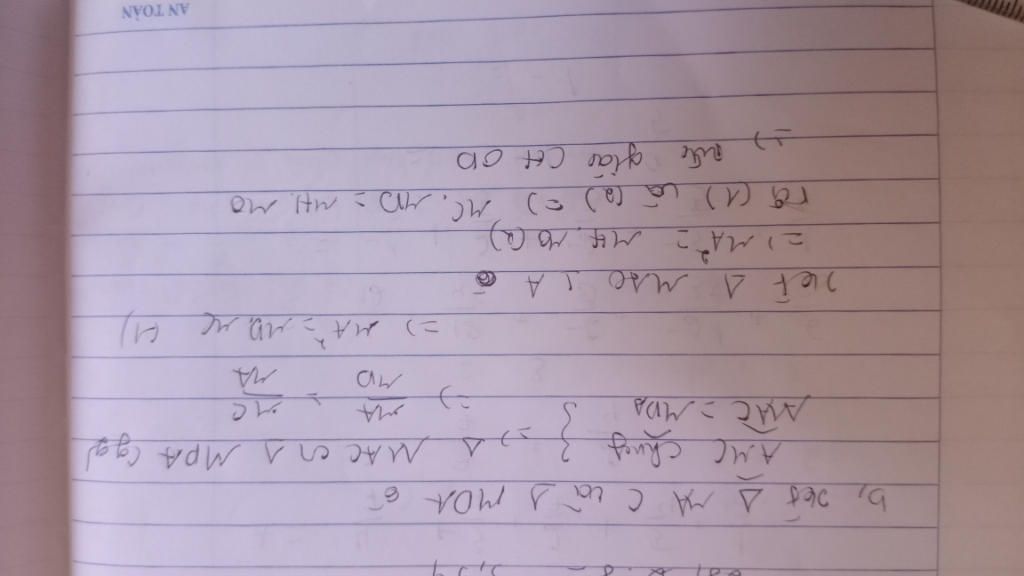 b, xét Δ MAC và Δ MDA có
AMC chung
MAC = MDA } => Δ MAC ∽ Δ MDA (gg)
=> MA/MD = MC/MA
=> MA² = MD.MC (1)
xét Δ MAO ⊥ A có
=> MA² = MH.MO (2)
Từ (1) và (2) => MC.MD = MH.MO
=> tứ giác CHOD
AN TOÀN